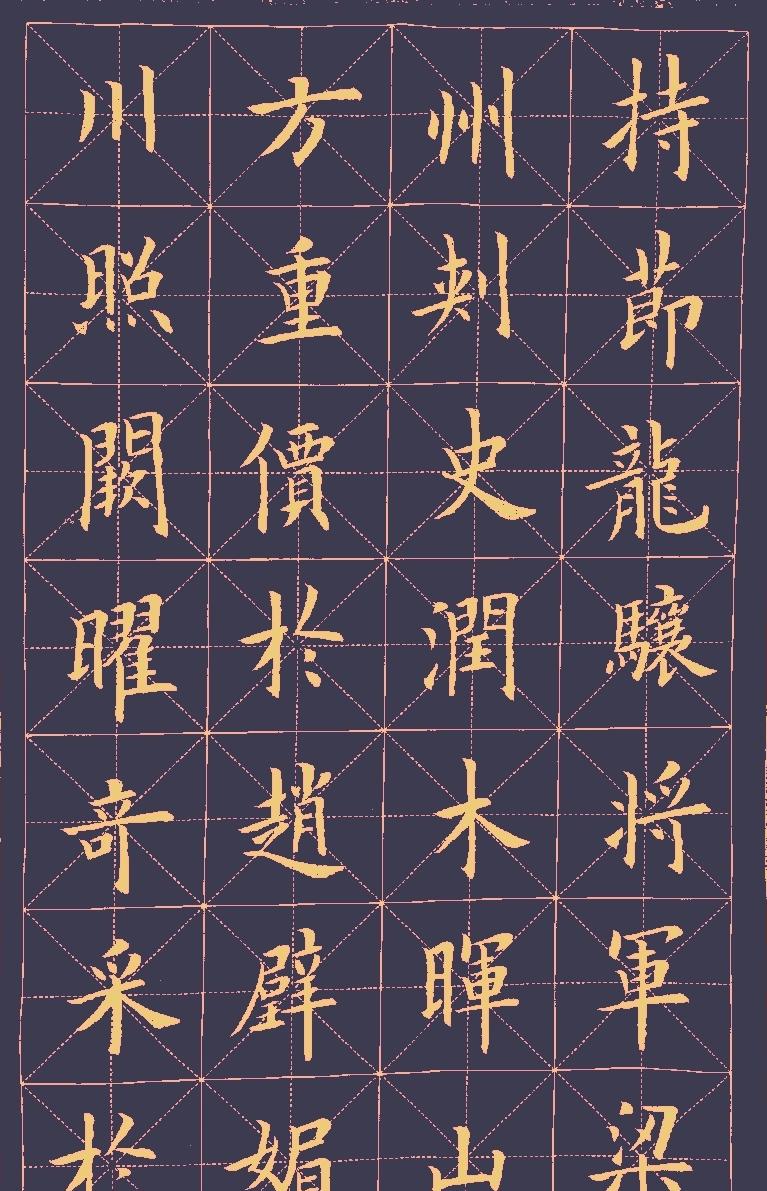 持節龍驤将軍梁
州刾史潤木暉山
方重價於趙璧媚
川照闕曜竒采於